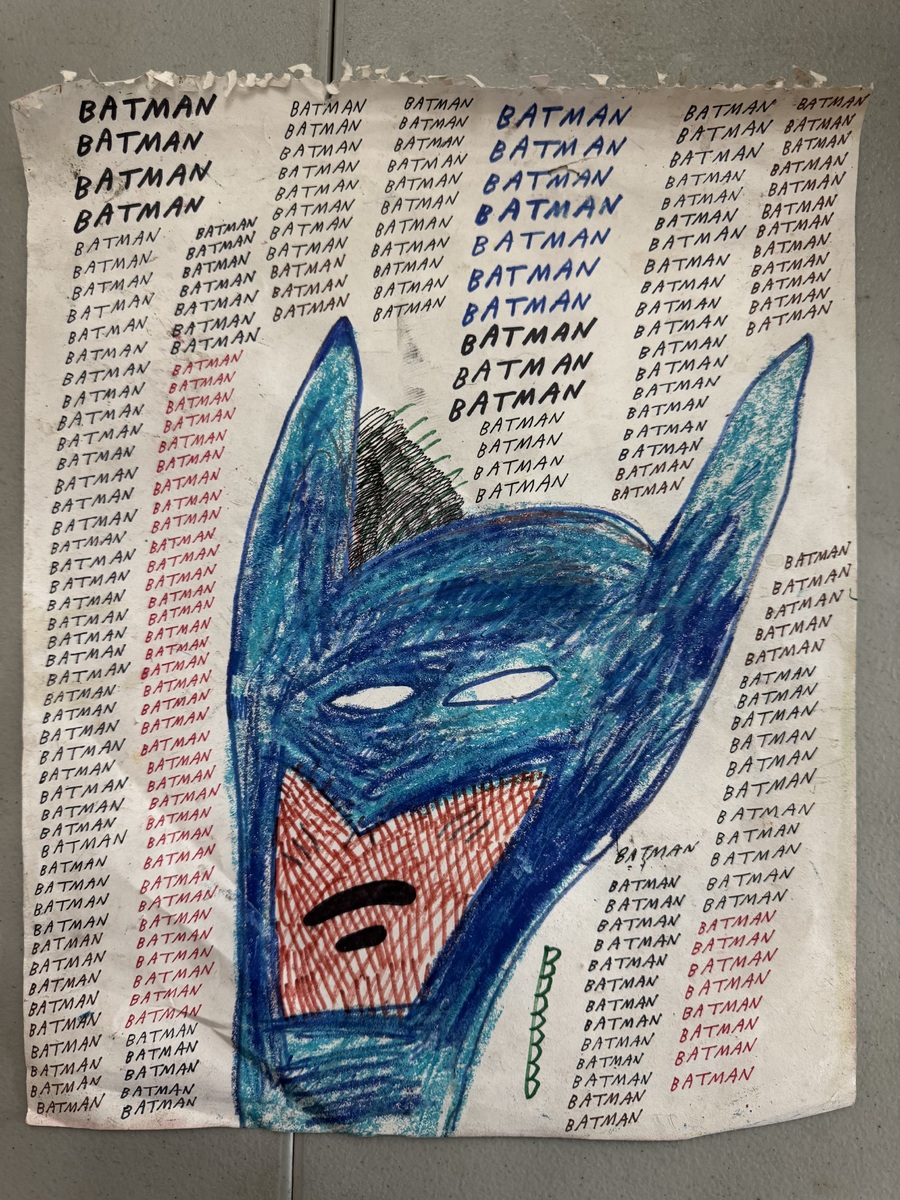 BATMAN
BATMAN
BATMAN
BATMAN
BATMAN
BATMAN
BATMAN
BATMAN
BATMAN
BATMAN
BATMAN
BATMAN
BATMAN
BATMAN
BATMAN
BATMAN
BATMAN
BATMAN
BATMAN
BATMAN
BATMAN
BATMAN
BATMAN
BATMAN
BATMAN
BATMAN
BATMAN
BATMAN
BATMAN
BATMAN
BATMAN
BATMAN
BATMAN
BATMAN
BATMAN
BATMAN
BATMAN
BATMAN
BATMAN
BATMAN
BATMAN
BATMAN
BATMAN
BATMAN
BATMAN
BATMAN
BATMAN
BATMAN
BATMAN
BATMAN
BATMAN
BATMAN
BATMAN
BATMAN
BATMAN
BATMAN
BATMAN
BATMAN
BATMAN
BATMAN
BATMAN
BATMAN
BATMAN
BATMAN
BATMAN
BATMAN
BATMAN
BATMAN
BATMAN
BATMAN
BATMAN
BATMAN
BATMAN
BATMAN
BATMAN
BATMAN
BATMAN
BATMAN
BATMAN
BATMAN
BATMAN
BATMAN
BATMAN
BATMAN
BATMAN
BATMAN
BATMAN
BATMAN
BATMAN
BATMAN
BATMAN
BATMAN
BATMAN
BATMAN
BATMAN
BATMAN
BATMAN
BATMAN
BATMAN
BATMAN
BATMAN
BATMAN
BATMAN
BATMAN
BATMAN
BATMAN
BATMAN
BATMAN
BATMAN
BATMAN
BATMAN
BATMAN
BATMAN
BATMAN
BATMAN
BATMAN
BATMAN
BATMAN
BATMAN
BATMAN
BATMAN
BATMAN
BATMAN
BATMAN
BATMAN
BATMAN
BATMAN
BATMAN
BATMAN
BATMAN
BATMAN
BATMAN
BATMAN
BATMAN
BATMAN
BATMAN
BATMAN
BATMAN
BATMAN
BATMAN
BATMAN
BATMAN
BATMAN
BATMAN
BATMAN
BATMAN
BATMAN
BATMAN
BATMAN
BATMAN
BATMAN
BATMAN
BATMAN
BATMAN
BATMAN
BATMAN
BATMAN
BATMAN
BATMAN
BATMAN
BATMAN
BATMAN
BATMAN
BATMAN
BATMAN
BATMAN
BATMAN
BATMAN
BATMAN
BATMAN
BATMAN
BATMAN
BATMAN
BATMAN
BATMAN
BATMAN
BATMAN
BATMAN
BATMAN
BATMAN
BATMAN
BATMAN
BATMAN
BATMAN
BATMAN
BATMAN
BATMAN
BATMAN
BATMAN
BATMAN
BATMAN
BATMAN
BATMAN
BATMAN
BATMAN
BATMAN
BATMAN
BATMAN
BATMAN